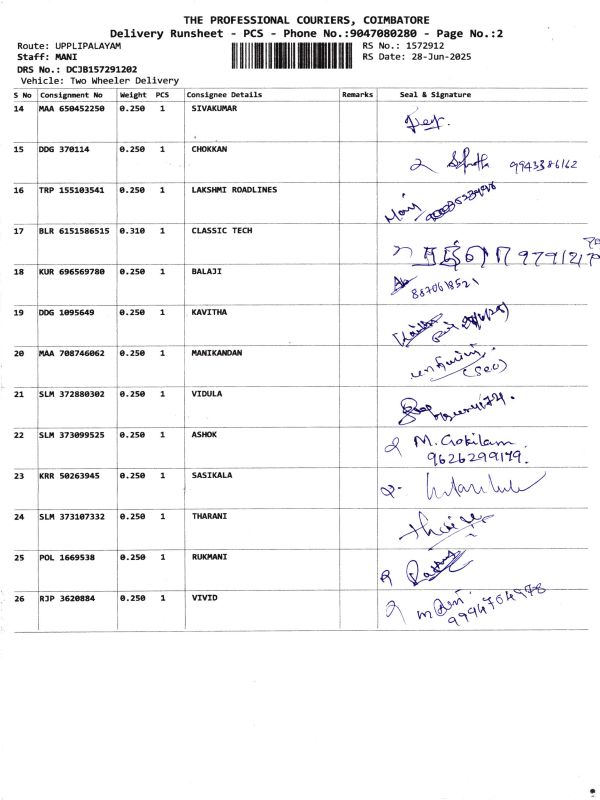 THE PROFESSIONAL COURIERS, COIMBATORE
Delivery Runsheet - PCS - Phone No.:9047080280 - Page No.:2
Route: UPPLIPALAYAM RS No.: 1572912
Staff: MANI RS Date: 28-Jun-2025
DRS No.: DCJB157291202
Vehicle: Two Wheeler Delivery
S No Consignment No Weight PCS Consignee Details Remarks Seal & Signature
14 MAA 650452250 0.250 1 SIVAKUMAR
15 DDG 370114 0.250 1 CHOKKAN 9943386162
16 TRP 155103541 0.250 1 LAKSHMI ROADLINES
17 BLR 6151586515 0.310 1 CLASSIC TECH
18 KUR 696569780 0.250 1 BALAJI
8870618521
19 DDG 1095649 0.250 1 KAVITHA
20 MAA 708746062 0.250 1 MANIKANDAN
21 SLM 372880302 0.250 1 VIDULA
22 SLM 373099525 0.250 1 ASHOK M. Gokilam
9626299179.
23 KRR 50263945 0.250 1 SASIKALA
24 SLM 373107332 0.250 1 THARANI
25 POL 1669538 0.250 1 RUKMANI
26 RJP 3620884 0.250 1 VIVID